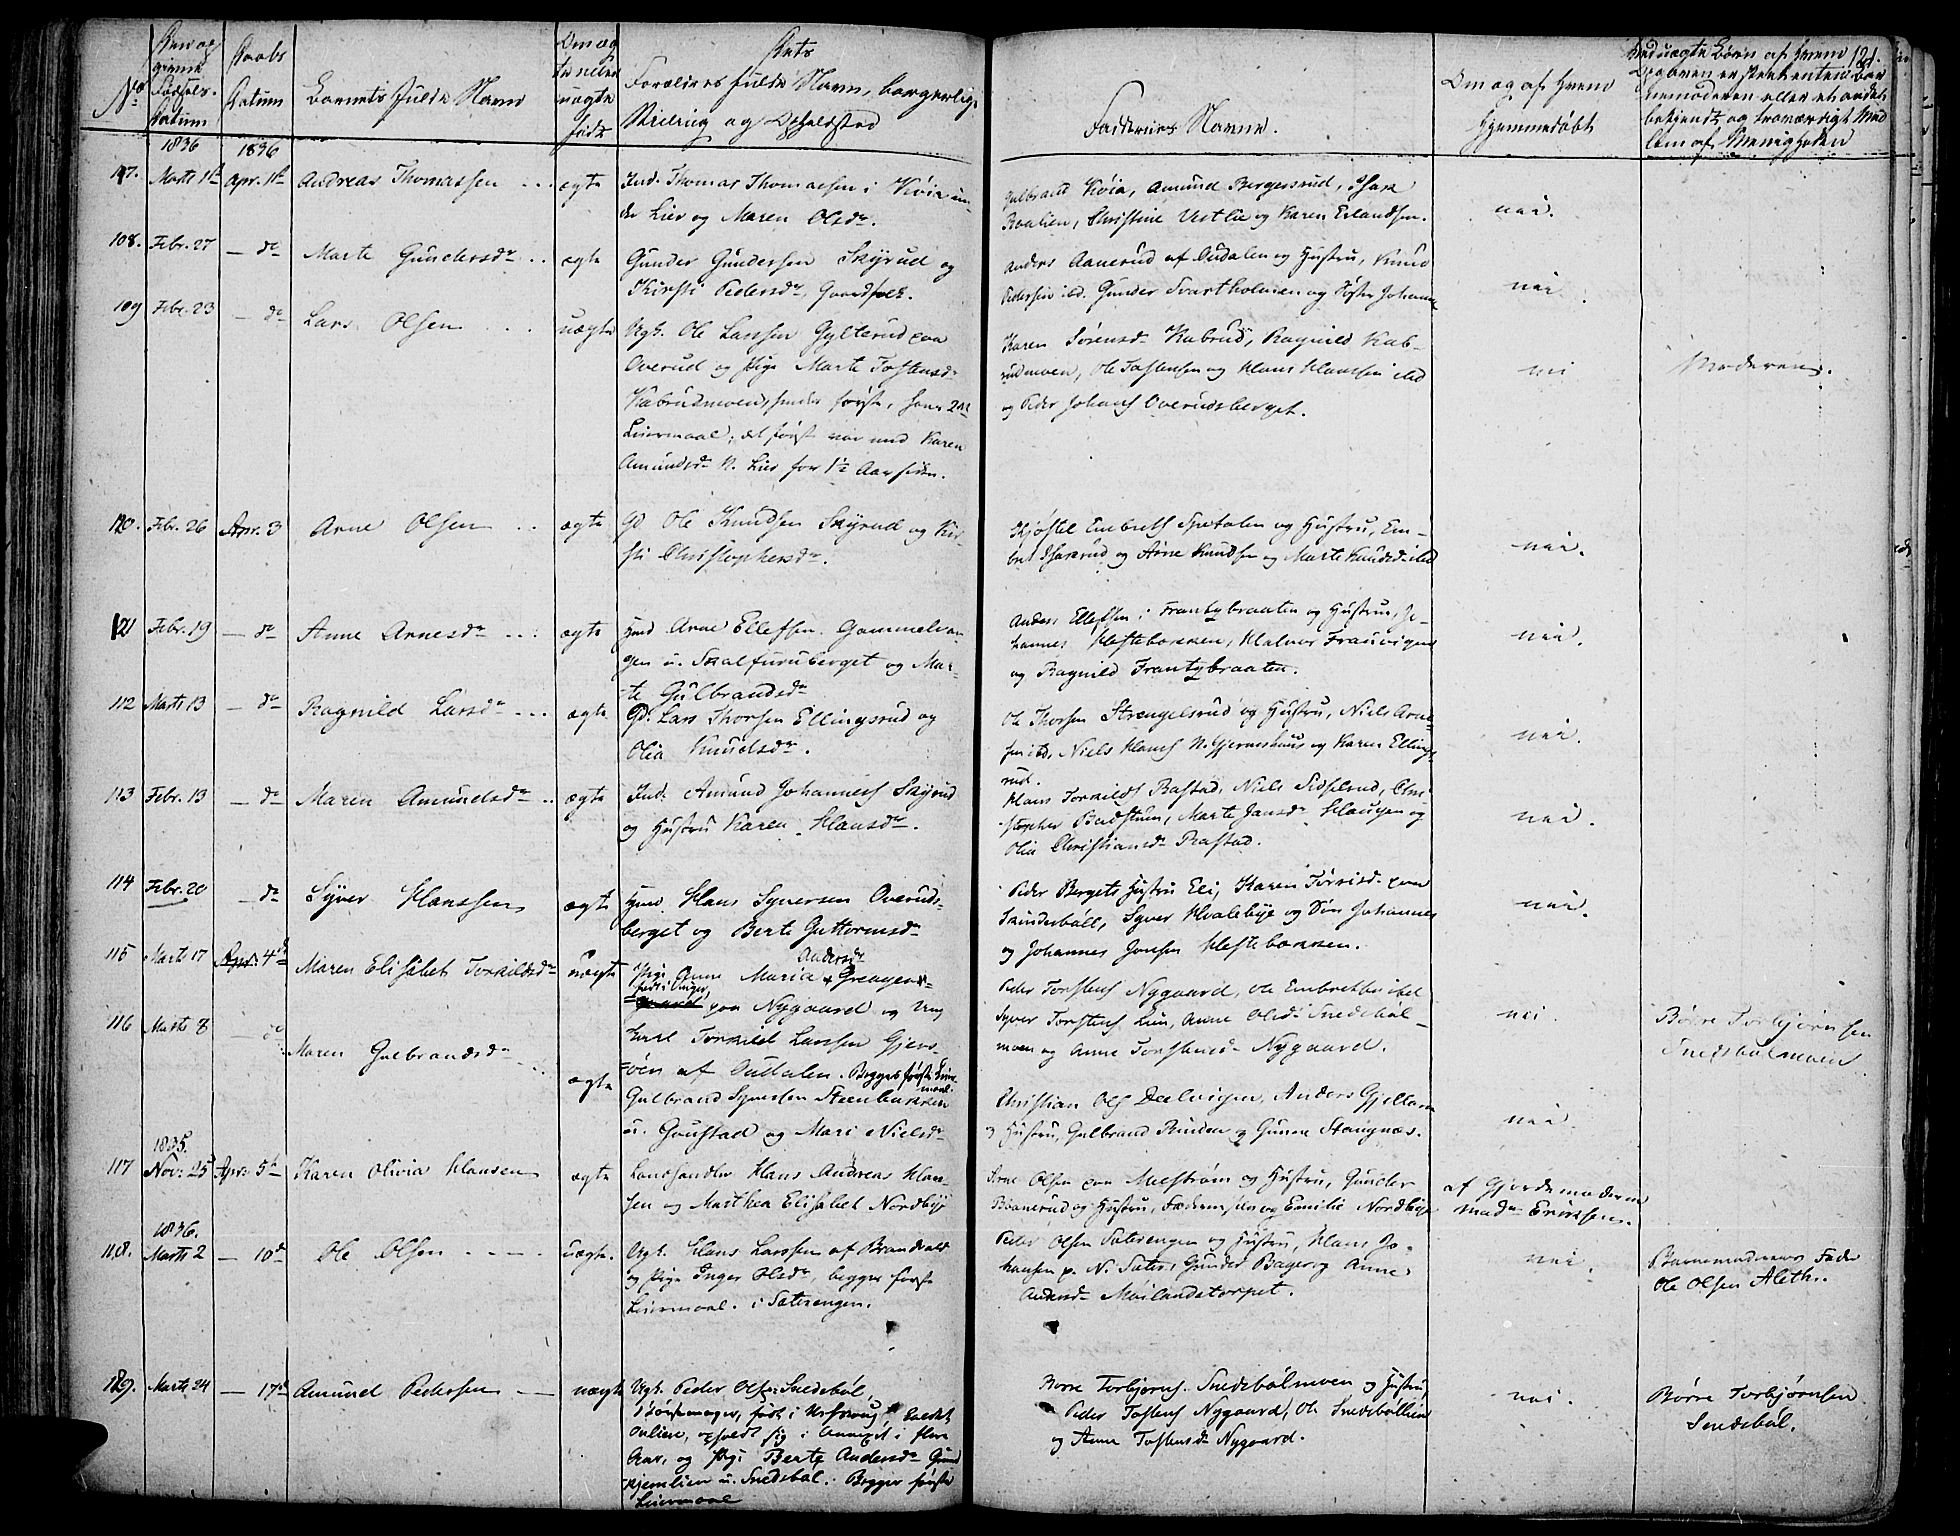 121.
No
Datum
Daabs
Datum
Barnets fulde Navn
Om æg
te eller
uægte
født
Forældres fulde Navn, borgerlige
og Opholdsted
Faddernes Navne.
Om og af hvem
hjemmedøbt
Ved uægte Børn af hvem
1836
1836
107. Marts 1st Apr. 1st Andreas Thomassen ... ægte
Ind. Thomas Thomassen i
Lier og Maren Olsdr.
Amund Bergersrud, Isak
Christine Vestlie og Karen Erlandsen.
nei.
108. Febr. 27 — do Marte Gundersdr .. ægte
Gunder Gundersen Skyrud og
Kirsti Pedersdr, Gaardfolk.
Anders Aanerud af Oudalen og Hustru, Knud
Pedersen ibd. Gunder Svartholmen og Søster Johanne
nei.
109 Febr. 23 — do Lars Olsen ... uægte
Ugk. Ole Larssen Gylterud paa
Overud og Pige Marte Tostensdr
Kabrudmoen, hendes første, hans 2det
Leiermaal; det første var med Karen
Amundsdr N. Lier for 1½ Aar siden.
Karen Sørensdr Kabrud, Ragnild Kab-
rudmoen, Ole Tostensen og Hans Hanssen ibd
og Peder Johans Overudsberget.
nei
Moderen.
110. Febr. 26 Apr. 3 Arne Olsen .. ægte
Gd. Ole Knudsen Skyrud og Kir-
sti Christophersdr.
Kjøstel Embrets Spetalen og Hustru, Em-
bret Isakrud og Arne Knudsen og Marte Knudsdr ibd
nei.
111 Febr. 19 — do Anne Arnesdr ... ægte
Hmd Arne Ellefsen Gammelvan-
gen u. Skalfuruberget og Mar-
te Gulbrandsdr
Anders Ellefsen i Frantzbraaten og Hustru, Jo-
hannes Heftebakken, Halvor
og Ragnild Frantzbraaten.
nei.
112 Marts 13 — do Ragnild Larsdr ... ægte
Gd. Lars Thorsen Ellingsrud og
Olia Knudsdr.
Ole Thorsen Strengelsrud og Hustru, Niels Arne-
sen ibd, Niels Hans N. Gjerneshuus og Karen Ellings-
rud.
nei.
113 Febr. 13 — do Maren Amundsdr .. ægte
Ind. Amund Johannes Skyrud
og Hustru Karen Hansdr.
Hans Torkilds Rastad, Niels Sidselrud, Chri-
stopher Badstuen, Marte Jansdr Haugen og
Olia Christiansdr Rastad.
nei.
114 Febr. 20 — do Syver Hanssen ægte
Hmd Hans Syversen Overuds-
berget og Berte Guttormsdr
Peder Bergets Hustru Eli, Karen paa
Skinderböll, Syver Hvalebye og Søn Johannes
og Johannes Jonsen Heftebakken.
nei.
115 Marts 17 Apr. 4de Maren Elisabet Torkildsdr uægte
Pige Anne Maria Andersdr
paa Nygaard og Ung
Karl Torkild Larssen
af Oudalen. Begges første Leier-
maal.
Peder Torstens Nygaard, Ole Embretsen ibd
Syver Torstens Lien, Anne Olsdr Snedsböl-
moen og Anne Torstensdr Nygaard.
nei.
Børre Torbjørnsen
Snedsbølmoen
116 Marts 8 — do Maren Gulbrandsdr .. ægte
Gulbrand Syversen Steenbakken
u. Goustad og Mari Nielsdr
Christian Ols Deelvigen, Anders Gjellum
og Hustru, Gulbrand Rinden og Gunne Stangnæs.
nei.
1835.
117 Nov: 25 Apr. 5te Karen Olivia Hansen ægte
Landhandler Hans Andreas Han-
sen og Marthea Elisabet Nordbye
Arne Olsen paa Mostrøm og Hustru, Gunder
Baanerud og Hustru, og Emilie Nordbye
af Gjordemoderen
Madm Eriksen.
1836.
118. Marts 2 — 10de Ole Olsen ... uægte.
Ugk. Hans Larssen af Brandvold
og Pige Inger Olsdr, begges første
Leiermaal. i Saterengen.
Peder Olsen Saterengen og Hustru, Hans Jo-
hansen p. N. Sater, Gunder Bager og Anne
Andersdr Moilandstorpet.
nei.
Barnemoderens Fader
Ole Olsen Aleth.
119. Marts 24 — 17de Amund Pedersen — uægte
Ugk. Peder Olsen Snedsböl,
født i Urskoug,
opholdt sig i Annexet i flere
Aar, og Pige Berte Andersdr
u. Snedsböl. Begges første
Leiermaal
Børre Torbjørns. Snedsbölmoen og Hustru
Peder Tostens Nygaard, Ole Snedsböllien
og Anne Tostensdr Nygaard.
nei.
Børre Torbjørnsen
Snedsböl.